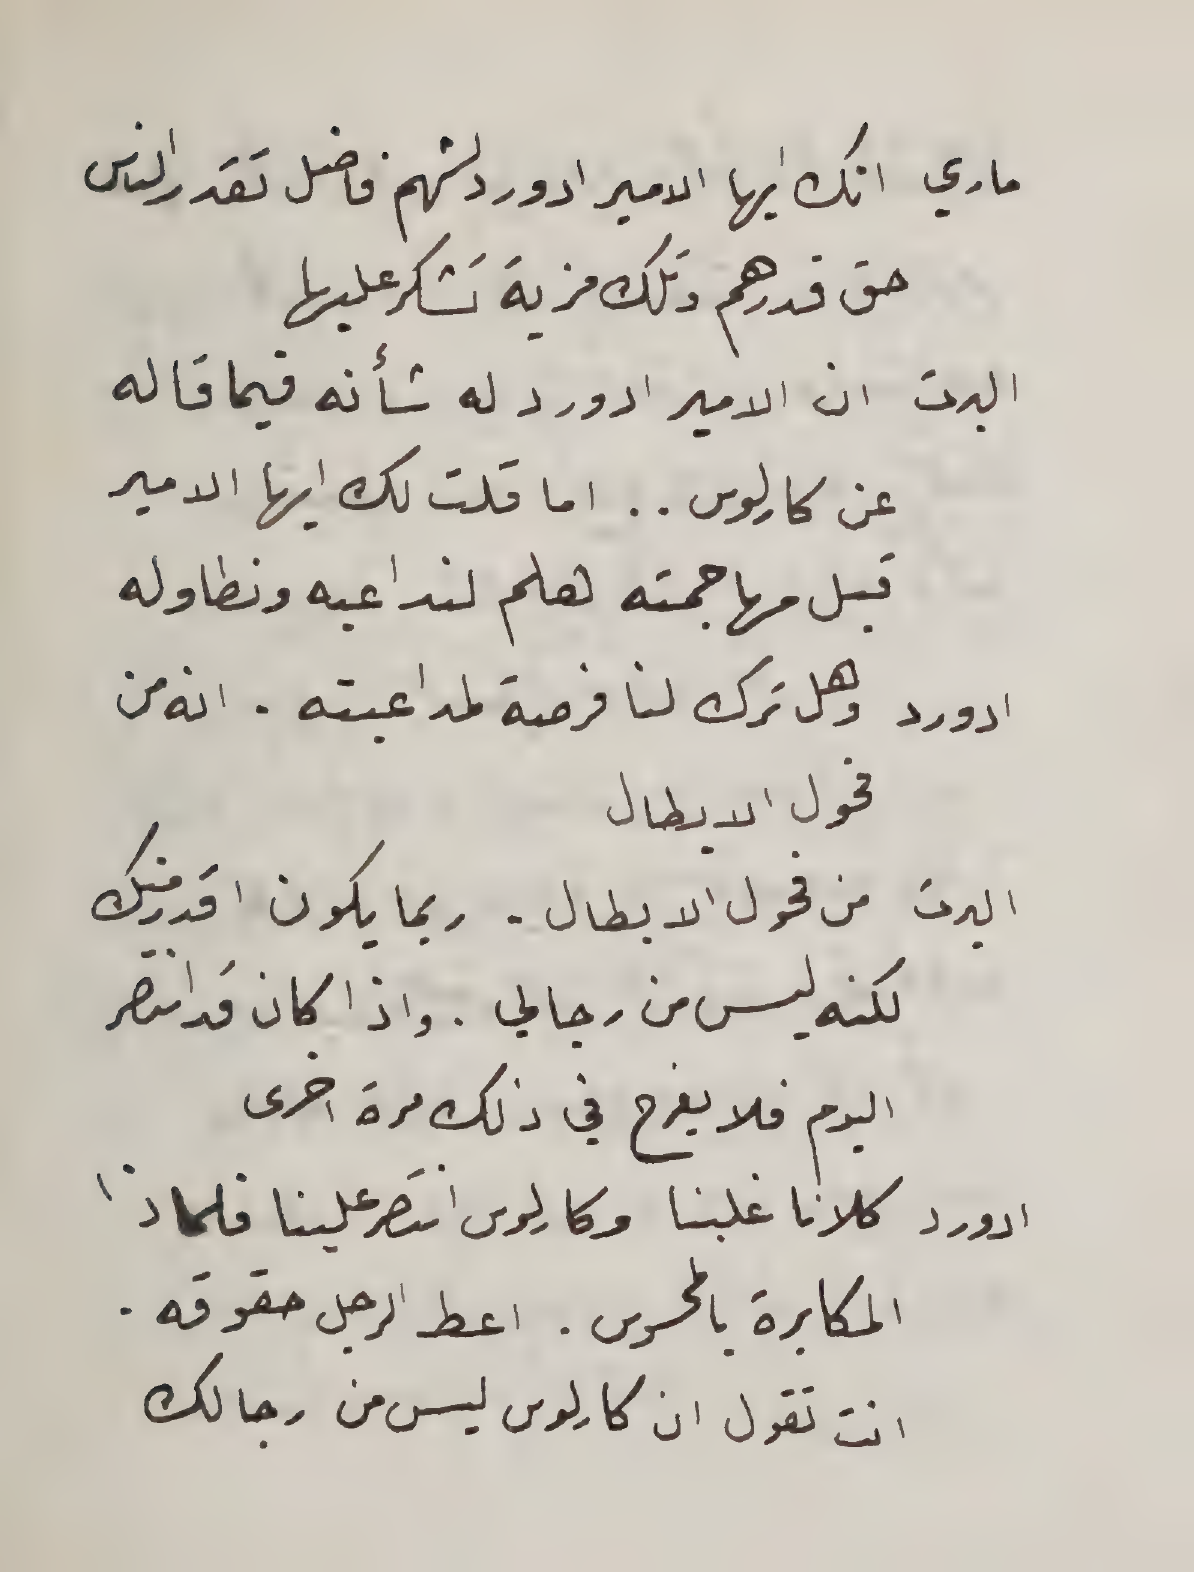 ماري انك ايها الامير ادورد لشهم فاضل تقدر الناس
حق قدرهم وتلك مزية تشكر عليها
البرت ان الامير ادورد له شأنه فيما قاله
عن كارلوس .. اما قلت لك ايها الامير
قبل مهاجمته هلم لنداعبه ونطاوله
ادورد وهل ترك لنا فرصة لمداعبته . انه من
فحول الابطال
البرت من فحول الابطال . ربما يكون اقدر منك
لكنه ليس من رجالي . واذا كان قد انتصر
اليوم فلا يفرح في ذلك مرة اخرى
ادورد كلانا غلبنا وكارلوس انتصر علينا فلماذا
المكابرة بالمحسوس . اعط الرجل حقوقه .
انت تقول ان كارلوس ليس من رجالك